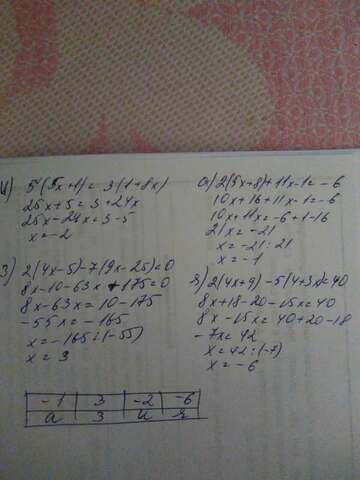 и) 5(5x+1)=3(1+8x)
25x+5=3+24x
25x-24x=3-5
x=-2
а) 2(5x+8)+11x-1=-6
10x+16+11x-1=-6
10x+11x=-6+1-16
21x=-21
x=-21:21
x=-1
з) 2(4x-5)-7(9x-25)=0
8x-10-63x+175=0
8x-63x=10-175
-55x=-165
x=-165:(-55)
x=3
я) 2(4x+9)-5(4+3x)=40
8x+18-20-15x=40
8x-15x=40+20-18
-7x=42
x=42:(-7)
x=-6
-1 3 -2 -6
а з и я